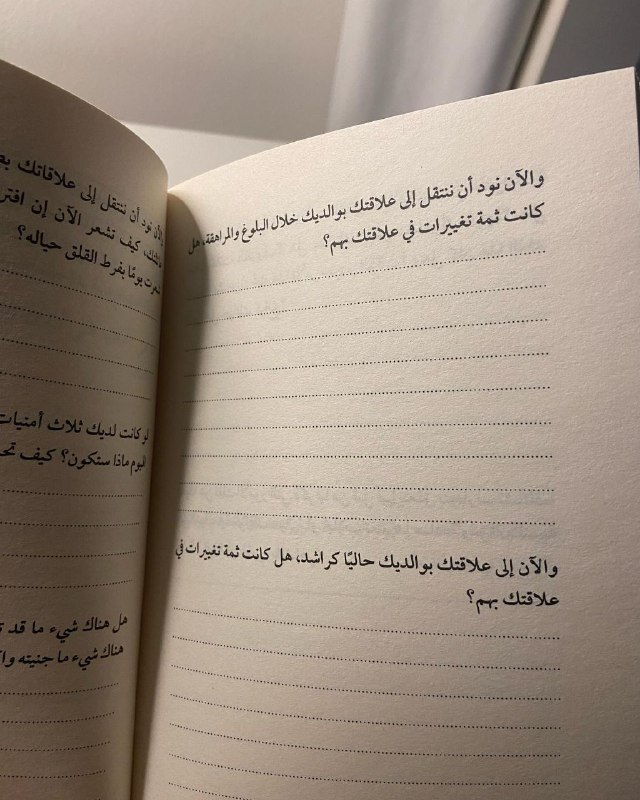 والآن نود أن ننتقل إلى علاقتك بوالديك خلال البلوغ والمراهقة، هل
كانت ثمة تغييرات في علاقتك بهم؟
والآن إلى علاقتك بوالديك حاليًا كراشد، هل كانت ثمة تغييرات في
علاقتك بهم؟
والآن نود أن ننتقل إلى علاقاتك
كيف تشعر الآن إن
يومًا بفرط القلق حياله؟
لو كانت لديك ثلاث أمنيات
اليوم ماذا ستكون؟ كيف
هل هناك شيء ما قد
هناك شيء ما جنيته